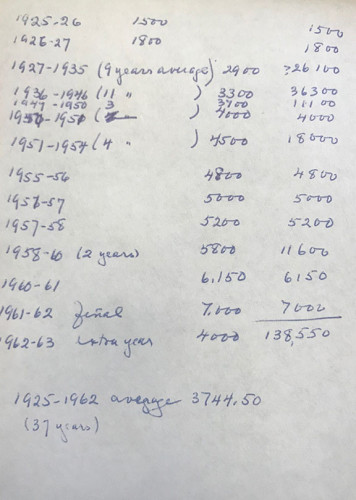 1925-26 1500 1500
1926-27 1800 1800
1927-1935 (9 years average) 2900 26100
1936-1946 (11 " ) 3300 36300
1947-1950 3 3700 11100
1950-1951 ( ) 4000 4000
1951-1954 (4 " ) 4500 18000
1955-56 4800 4800
1956-57 5000 5000
1957-58 5200 5200
1958-60 (2 years) 5800 11600
1960-61 6,150 6150
1961-62 final 7,000 7000
1962-63 extra year 4000 138,550
1925-1962 average 3744.50
(37 years)